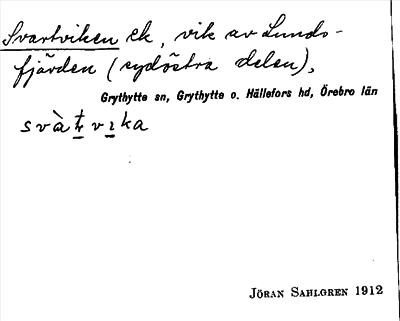 Svartviken ek, vik av Lunds-
fjärden (sydöstra delen),
Grythytte sn, Grythytte o. Hällefors hd, Örebro län
svàt̠v̠ıka
JÖRAN SAHLGREN 1912